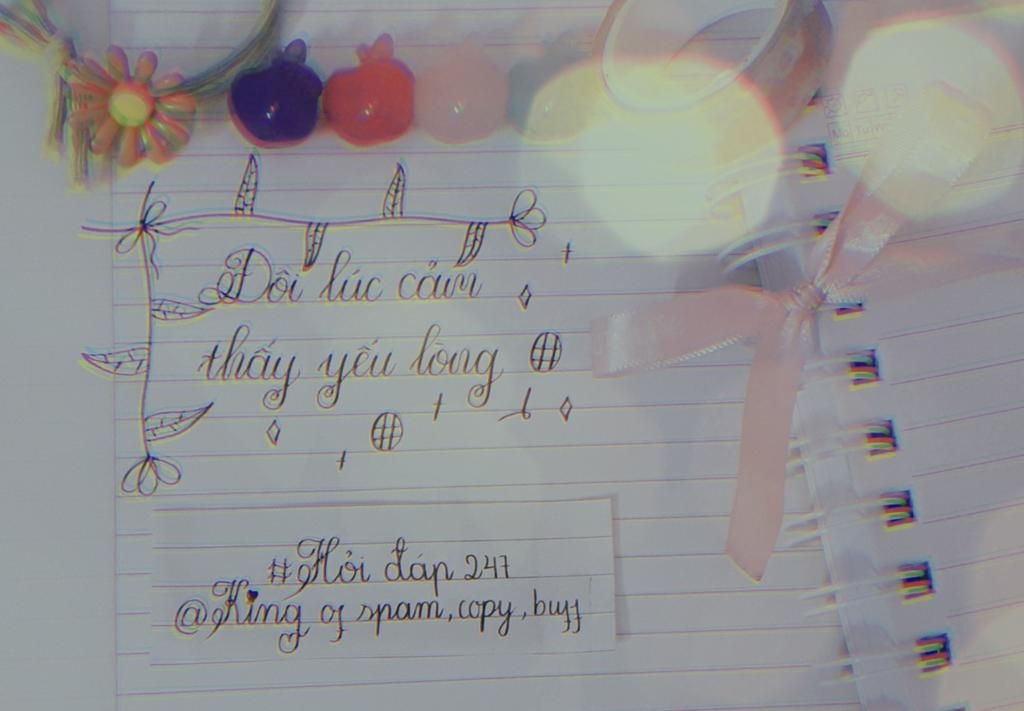 Đôi lúc cảm
thấy yếu lòng
#Hỏi đáp 247
@King of spam, copy, buff